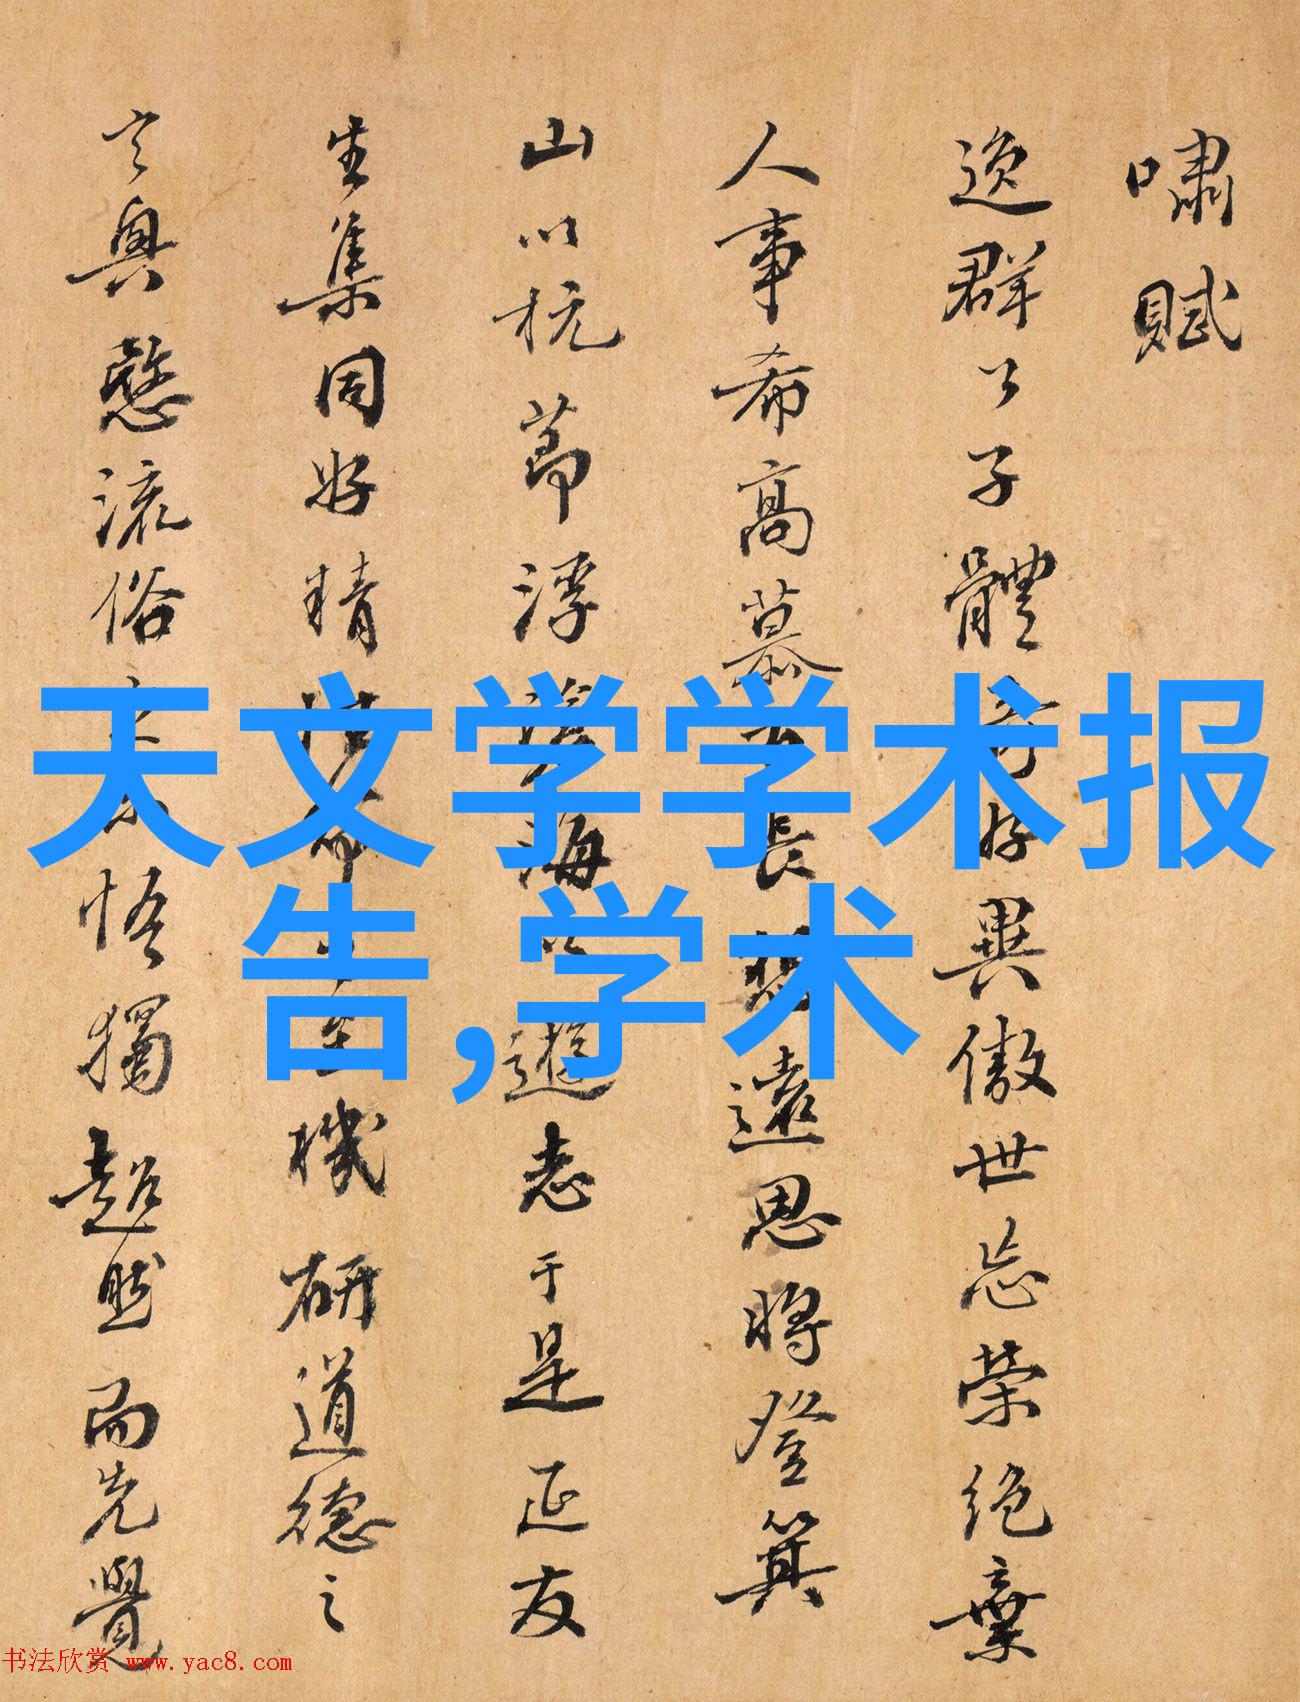 嘯賦
逸群公子體奇好異傲世忘榮絕棄
人事希高慕古長想遠思將登箕
山以抗節浮滄海以遊志于是延友
生集同好精性命之至機研道德之
玄奧愍流俗之未悟獨超然而先覺
天文学学术报
告,学术
书法欣赏 www.yac8.com